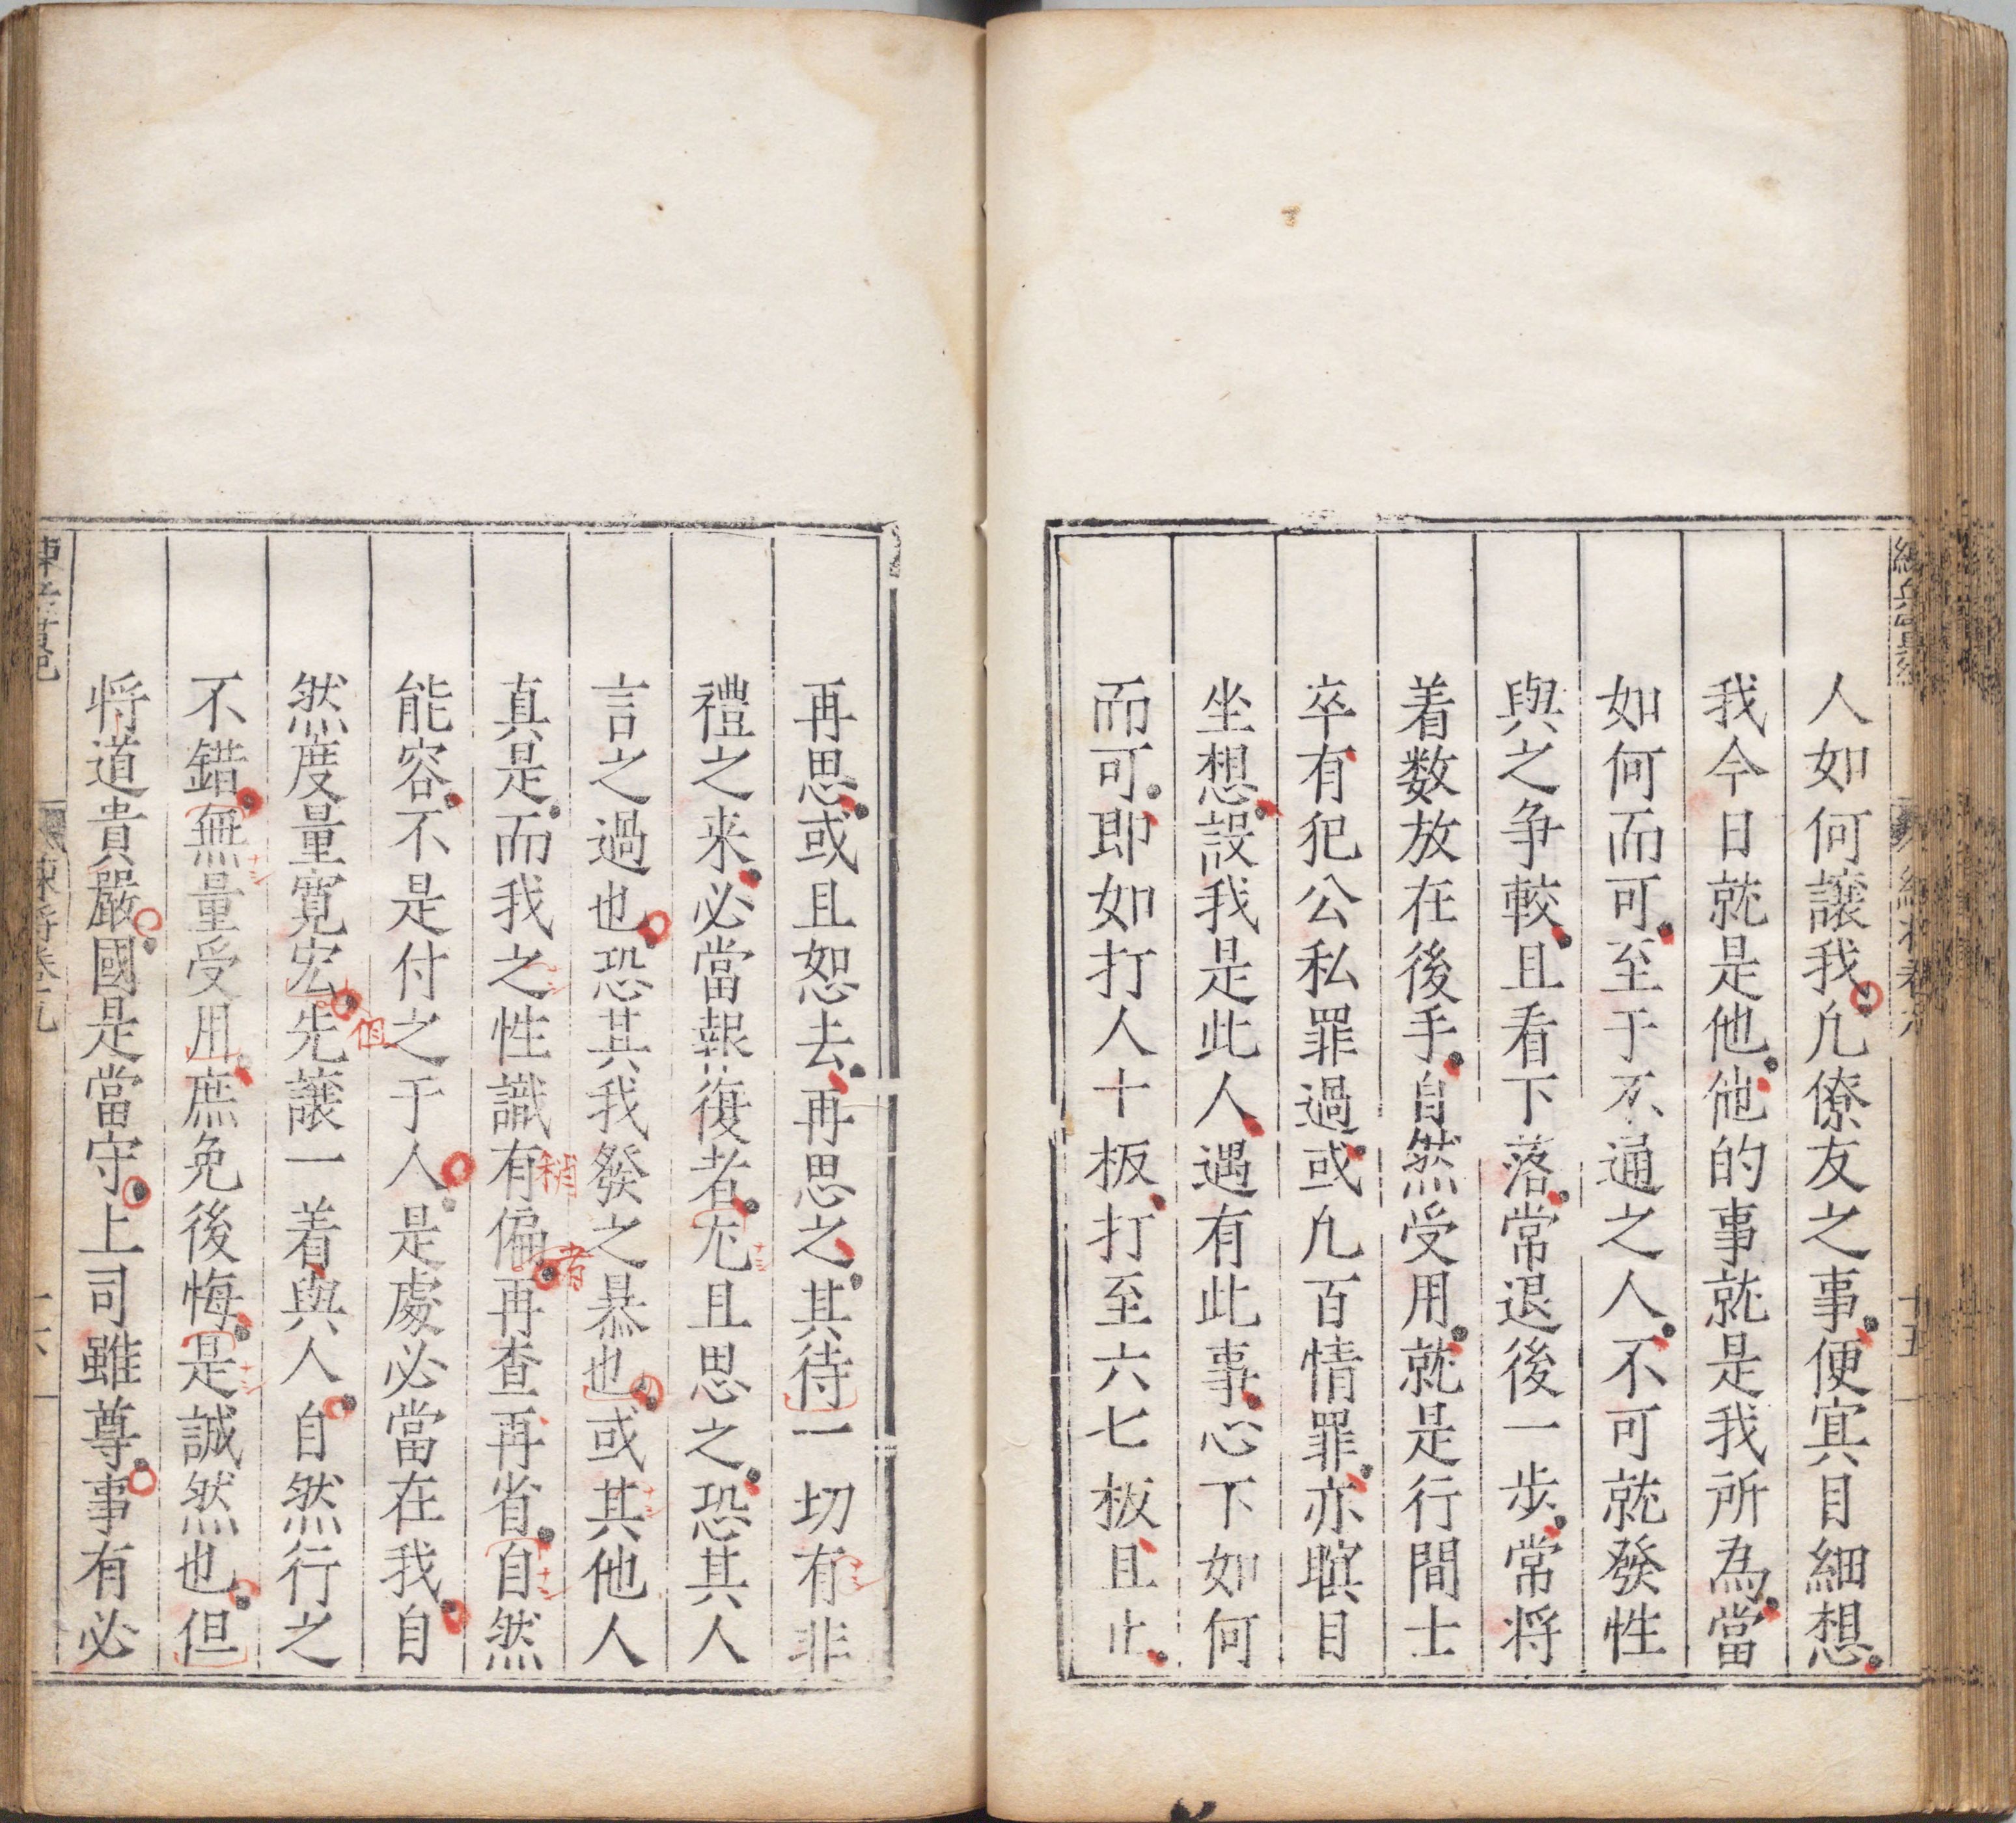 人如何讓我凢僚友之事便寘目細想
我今日就是他他的事就是我所為當
如何而可至于不通之人不可就發性
與之争較且看下落常退後一步常将
着数放在後手自然受用就是行間士
卒有犯公私罪過或凢百情罪亦瞑目
坐想設我是此人遇有此事心下如何
而可即如打人十板打至六七板且止
再思或且恕去再思之其待一切有非
禮之来必當報復者尤且思之恐其人
言之過也恐其我發之暴也或其他人
真是而我之性識有偏再查再省自然
稍
者
能容不是付之于人是處必當在我自
但
然度量寬宏先讓一着與人自然行之
不錯無量受用庶免後悔是誠然也但
将道貴嚴國是當守上司雖尊事有必